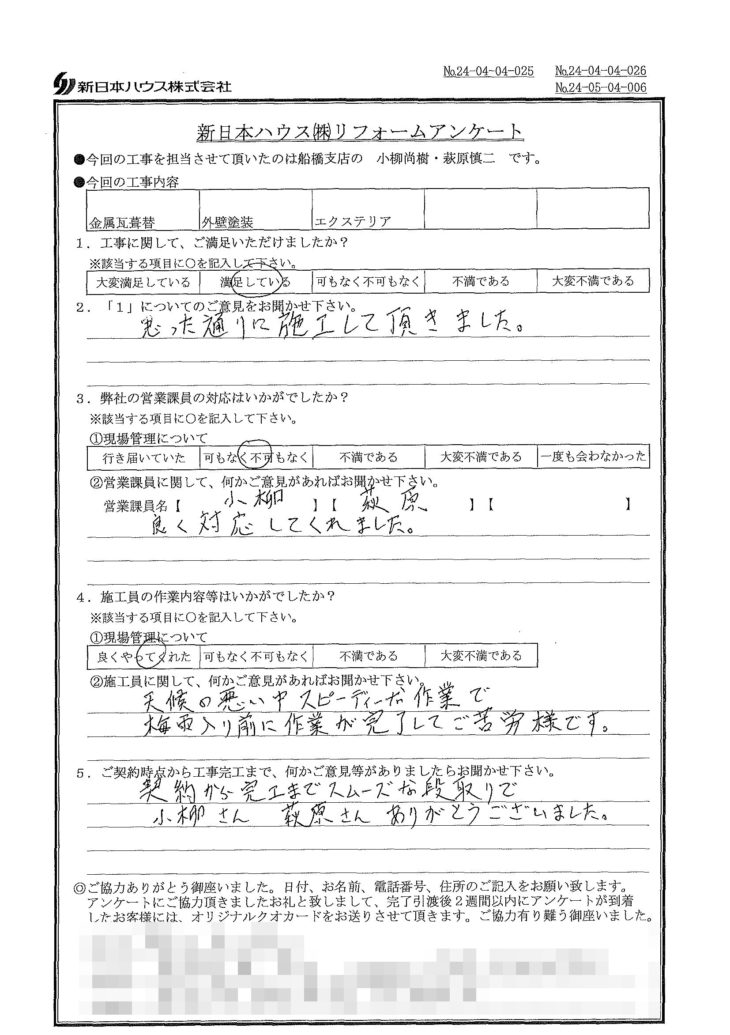 №24-04-04-025 №24-04-04-026
新日本ハウス株式会社 №24-05-04-006
新日本ハウス㈱リフォームアンケート
●今回の工事を担当させて頂いたのは船橋支店の 小柳尚樹・萩原慎二 です。
●今回の工事内容
金属瓦葺替 外壁塗装 エクステリア
1．工事に関して、ご満足いただけましたか？
※該当する項目に○を記入して下さい。
大変満足している 満足している 可もなく不可もなく 不満である 大変不満である
2．「1」についてのご意見をお聞かせ下さい。
思った通りに施工して頂きました。
3．弊社の営業課員の対応はいかがでしたか？
※該当する項目に○を記入して下さい。
①現場管理について
行き届いていた 可もなく不可もなく 不満である 大変不満である 一度も会わなかった
②営業課員に関して、何かご意見があればお聞かせ下さい。
営業課員名【 小柳 】【 萩原 】【 】
良く対応してくれました。
4．施工員の作業内容等はいかがでしたか？
※該当する項目に○を記入して下さい。
①現場管理について
良くやってくれた 可もなく不可もなく 不満である 大変不満である
②施工員に関して、何かご意見があればお聞かせ下さい。
天候の悪い中スピーディーな作業で
梅雨入り前に作業が完了してご苦労様です。
5．ご契約時点から工事完工まで、何かご意見等がありましたらお聞かせ下さい。
契約から完工までスムーズな段取りで
小柳さん 萩原さん ありがとうございました。
◎ご協力ありがとう御座いました。日付、お名前、電話番号、住所のご記入をお願い致します。
アンケートにご協力頂きましたお礼と致しまして、完了引渡後2週間以内にアンケートが到着
したお客様には、オリジナルクオカードをお送りさせて頂きます。ご協力有り難う御座いました。